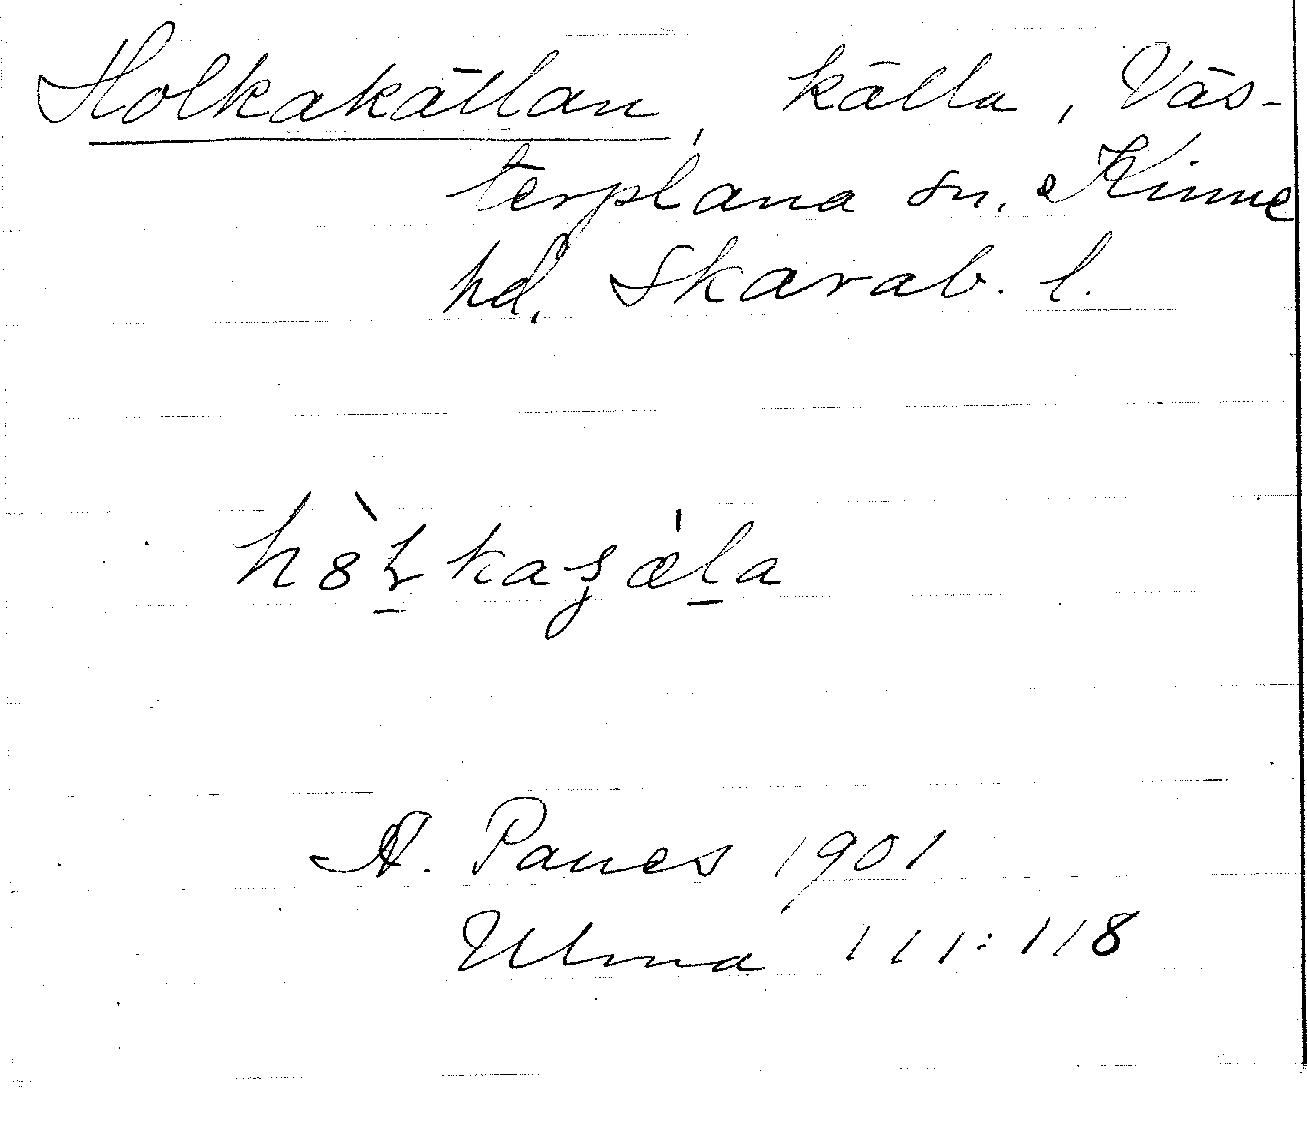 Holkakällan, källa, Väs-
terplana sn. Kinne
hd. Skarab. l.
A. Panes 1901
Ulma 111:118